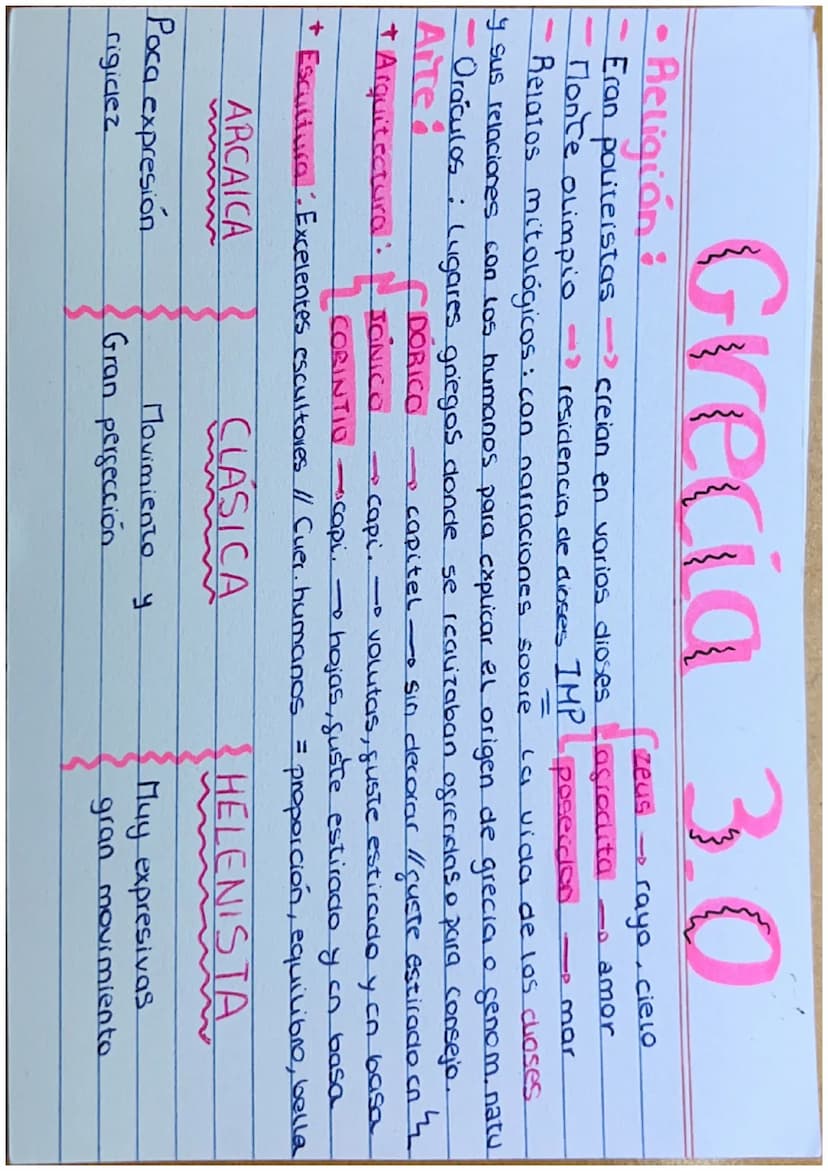 Grecia 3.0
• Religión:
- Eran politeístas → creian en varios dioses { zeus → rayo, cielo
afrodita → amor
poseidon → mar
- Monte olimpio → residencia de dioses IMP
- Relatos mitológicos: con narraciones sobre la vida de los dioses
y sus relaciones con los humanos para explicar el origen de grecia o fenom. natu
- Oráculos: lugares griegos donde se realizaban ofrendas o para consejo.
Arte:
+ Arquitectura: { DÓRICO → capitel → sin decorar // fuste estirado en
JÓNICO → capi. → volutas, fuste estirado y en basa
CORINTIO → capi. → hojas, fuste estirado y en basa
+ Escultura: Excelentes escultores // Cuer. humanos = proporción, equilibro, bella
ARCAICA CLÁSICA HELENISTA
Poca expresión Movimiento y Muy expresivas
rigidez Gran perfección gran movimiento